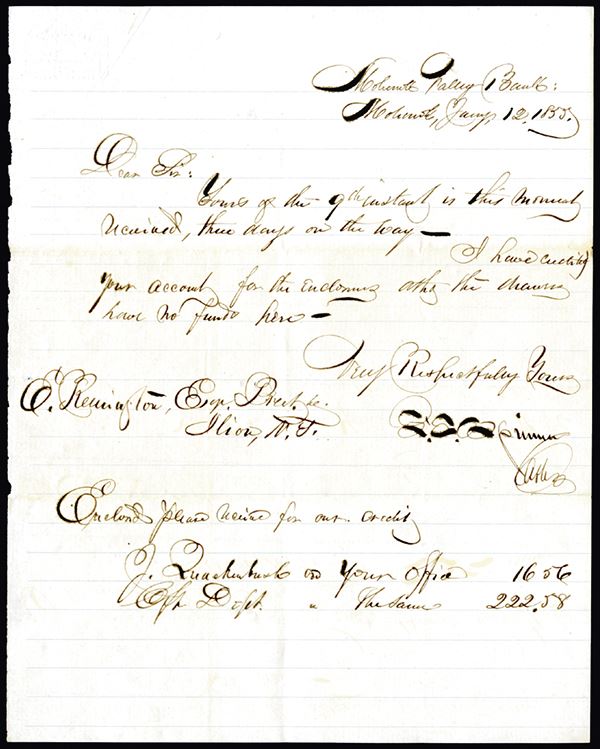 Mohawk Valley Bank:
Mohawk, Jany. 12, 1855.
Dear Sir:
Yours of the 9th instant is this moment
received, three days on the way —
I have credited
your account for the enclosures altho the drawers
have no funds here —
Very Respectfully Yours
E. Remington, Esq. Prest. &c.
Ilion, N.Y.
F. E. Spinner
Cashr
Enclosed please receive for our credit
J. Quackenbush on Your Office 16.56
Dost " The Same 222.58